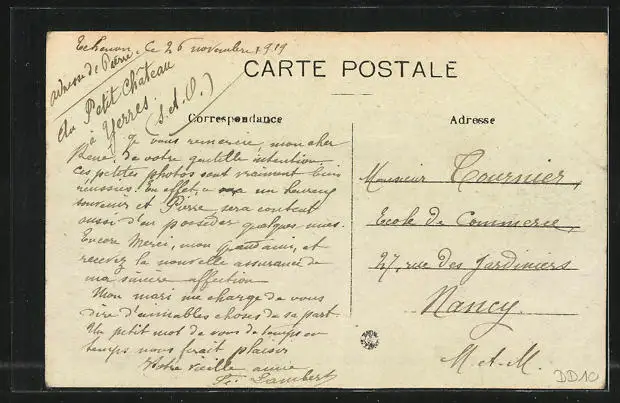 Echenon, le 26 novembre 1919
adresse de Pierre
du Petit Château
à Yerres.
(S. et. O.)
CARTE POSTALE
Correspondance
Je vous remercie, mon cher
René, de votre gentille intention,
ces petites photos sont vraiment bien
réussies! En effet, un heureux
souvenir et Pierre sera content
aussi d'en posséder quelques unes.
Encore Merci, mon grand ami, et
recevez la nouvelle assurance de
ma sincère affection
Mon mari me charge de vous
dire d'aimables choses de sa part.
Un petit mot de vous de temps en
temps nous ferait plaisir
Votre vieille amie
Lambert
Adresse
Monsieur Tournier,
Ecole de Commerce,
27, rue des Jardiniers
Nancy
M. et. M.
DD10